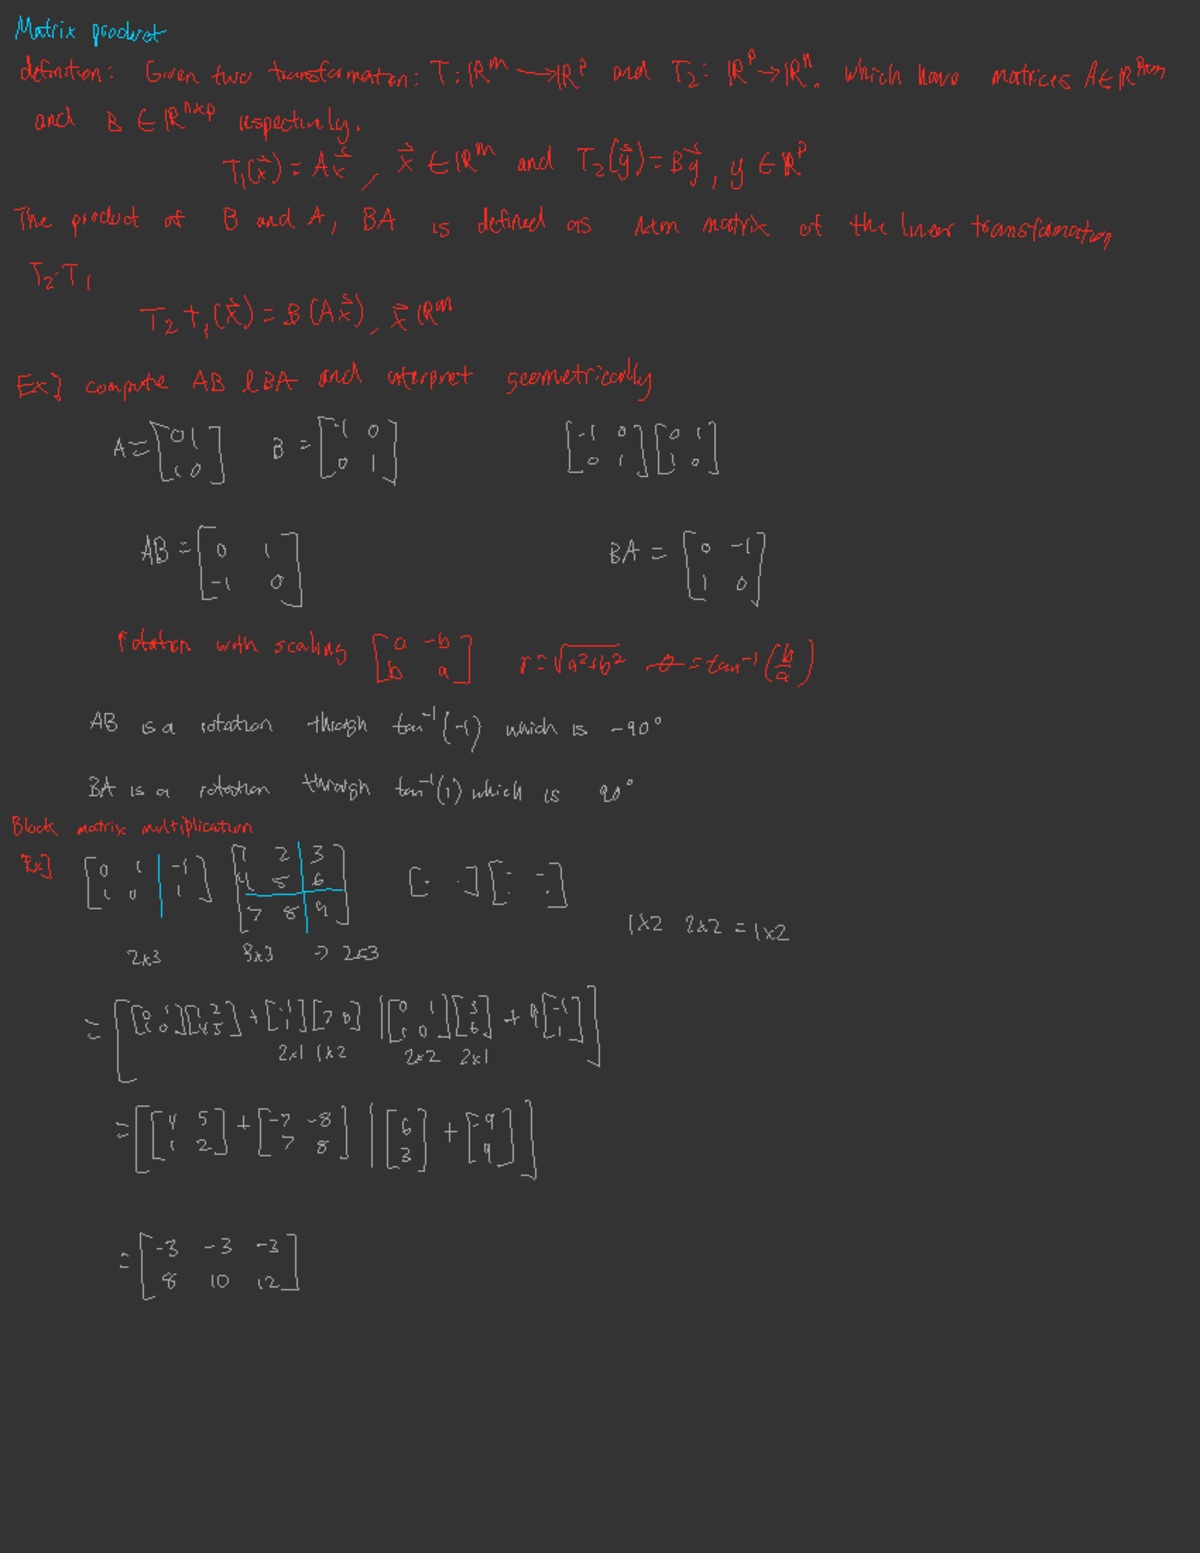 Matrix product
definition: Given two transformation: T: ℝᵐ → ℝᵖ and T₂: ℝᵖ → ℝⁿ. which have matrices A ∈ ℝᵖˣᵐ
and B ∈ ℝⁿˣᵖ respectively.
T₁(x⃗) = Ax⃗, x⃗ ∈ ℝᵐ and T₂(y⃗) = By⃗, y ∈ ℝᵖ
The product of B and A, BA is defined as nxm matrix of the linear transformation
T₂·T₁
T₂T₁(x⃗) = B(Ax⃗), x⃗ ℝᵐ
Ex] compute AB & BA and interpret geometrically
A = [0 1; 1 0] B = [-1 0; 0 1] [-1 0; 0 1][0 1; 1 0]
AB = [0 1; -1 0] BA = [0 -1; 1 0]
rotation with scaling [a -b; b a] r = √(a²+b²) θ = tan⁻¹(b/a)
AB is a rotation through tan⁻¹(-1) which is -90°
BA is a rotation through tan⁻¹(1) which is 90°
Block matrix multiplication
Ex] [0 1 | -1; 1 0 | 1] [1 2 | 3; 4 5 | 6; 7 8 | 9] [· ·][: ·:]
1x2 2x2 = 1x2
2x3 3x3 → 2x3
= [[0 1; 1 0][1 2; 4 5] + [-1; 1][7 8] | [0 1; 1 0][3; 6] + 9[-1; 1]]
2x1 1x2 2x2 2x1
= [[4 5; 1 2] + [-7 -8; 7 8] | [6; 3] + [-9; 9]]
= [-3 -3 -3; 8 10 12]